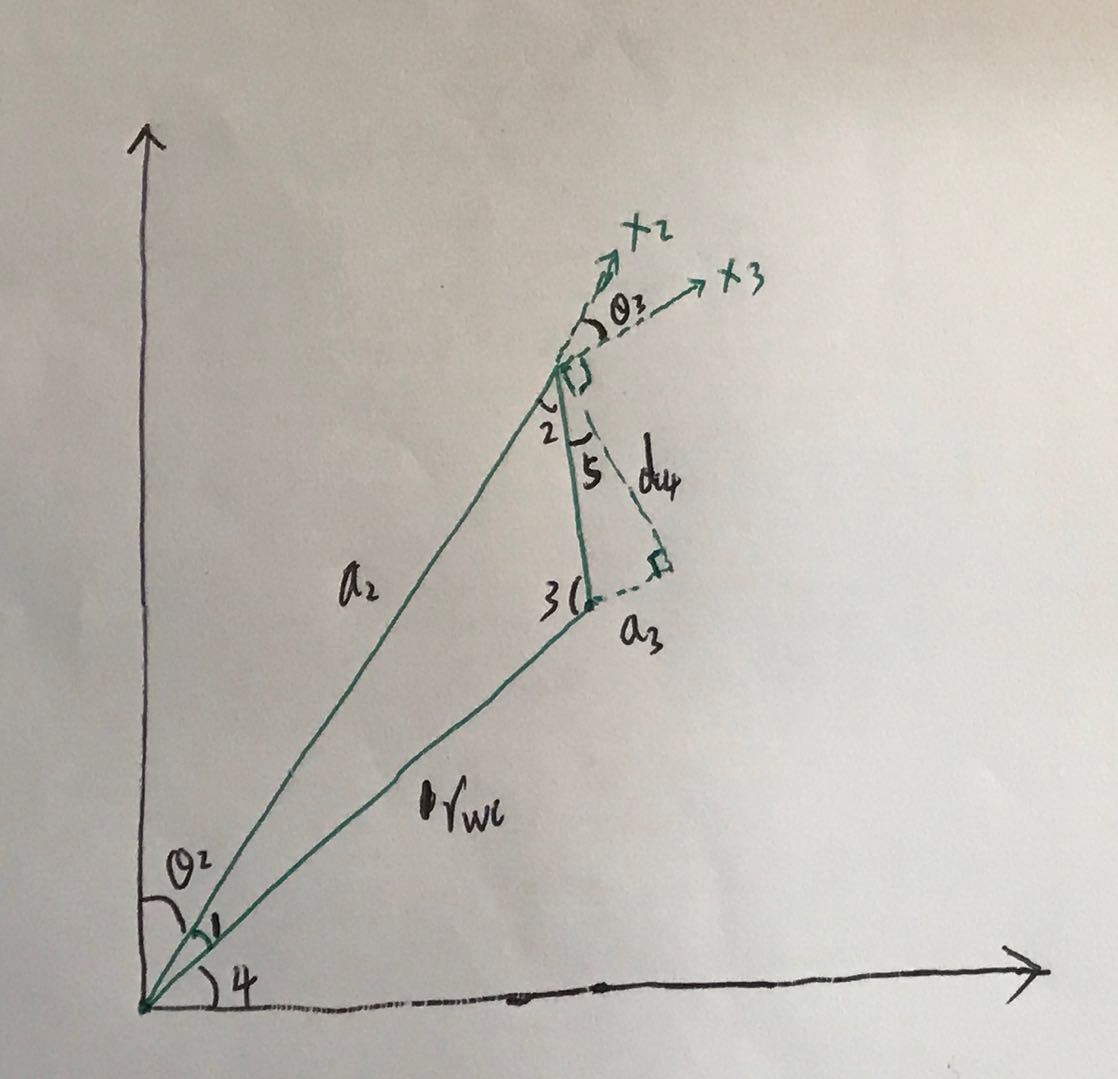 x2
x3
θ3
2
5
d4
a2
3
a3
rwc
θ2
1
4